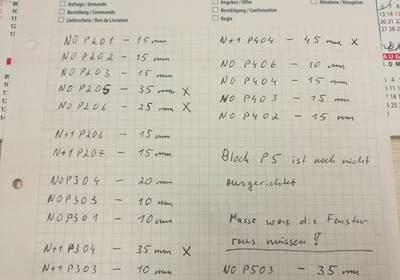 Anfrage / Demande
Bestellung / Commande
Lieferschein / Bon de Livraison
Angebot / Offre
Bestätigung / Confirmation
Regie
Abnahme / Réception
NO P201 - 15 mm
NO P202 - 15 mm
NO P203 - 15 mm
NO P205 - 35 mm X
NO P206 - 25 mm X
N+1 P206 - 15 mm
N+1 P207 - 15 mm
NO P304 - 20 mm
NO P303 - 10 mm
NO P301 - 10 mm
N+1 P304 - 35 mm X
N+1 P303 - 10 mm
N+1 P404 - 45 mm X
NO P406 - 10 mm
NO P404 - 15 mm
NO P403 - 15 mm
NO P402 - 15 mm
Block P5 ist noch nicht
ausgerichtet
Masse was die Fenster
raus müssen !!
NO P503 - 35 mm